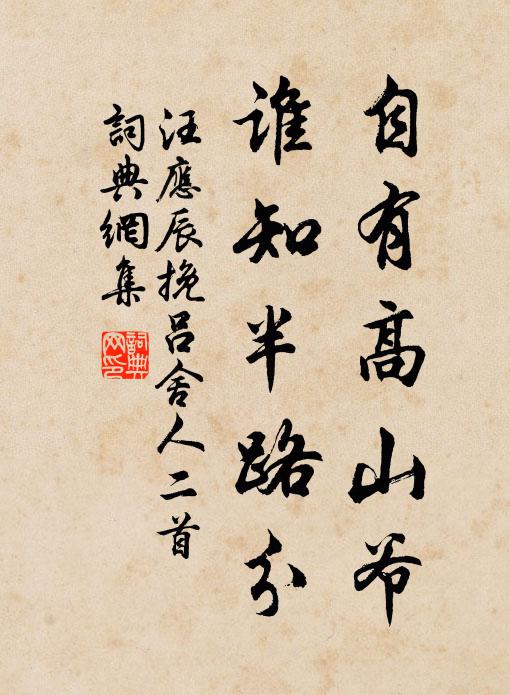 自有高山爷
谁知半路分
汪應辰挽吕舍人二首
詞典網集
詞典網印